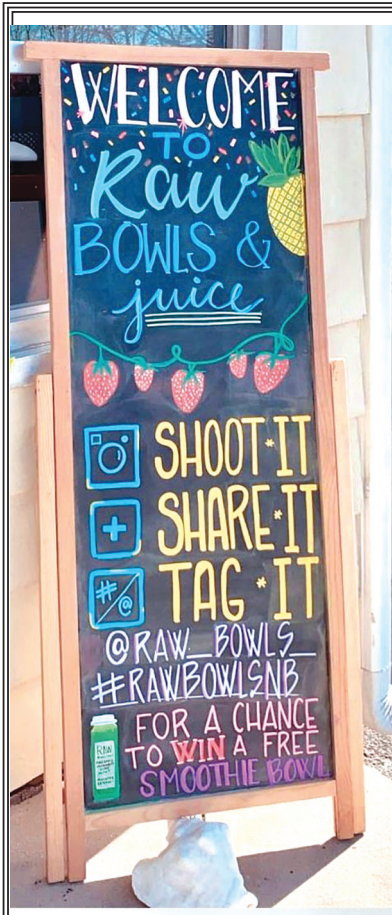 WELCOME
TO
Raw
BOWLS &
juice
SHOOT*IT
+
SHARE*IT
#/@
TAG*IT
@RAW_BOWLS_
#RAWBOWLSNB
FOR A CHANCE
TO WIN A FREE
SMOOTHIE BOWL
RAW